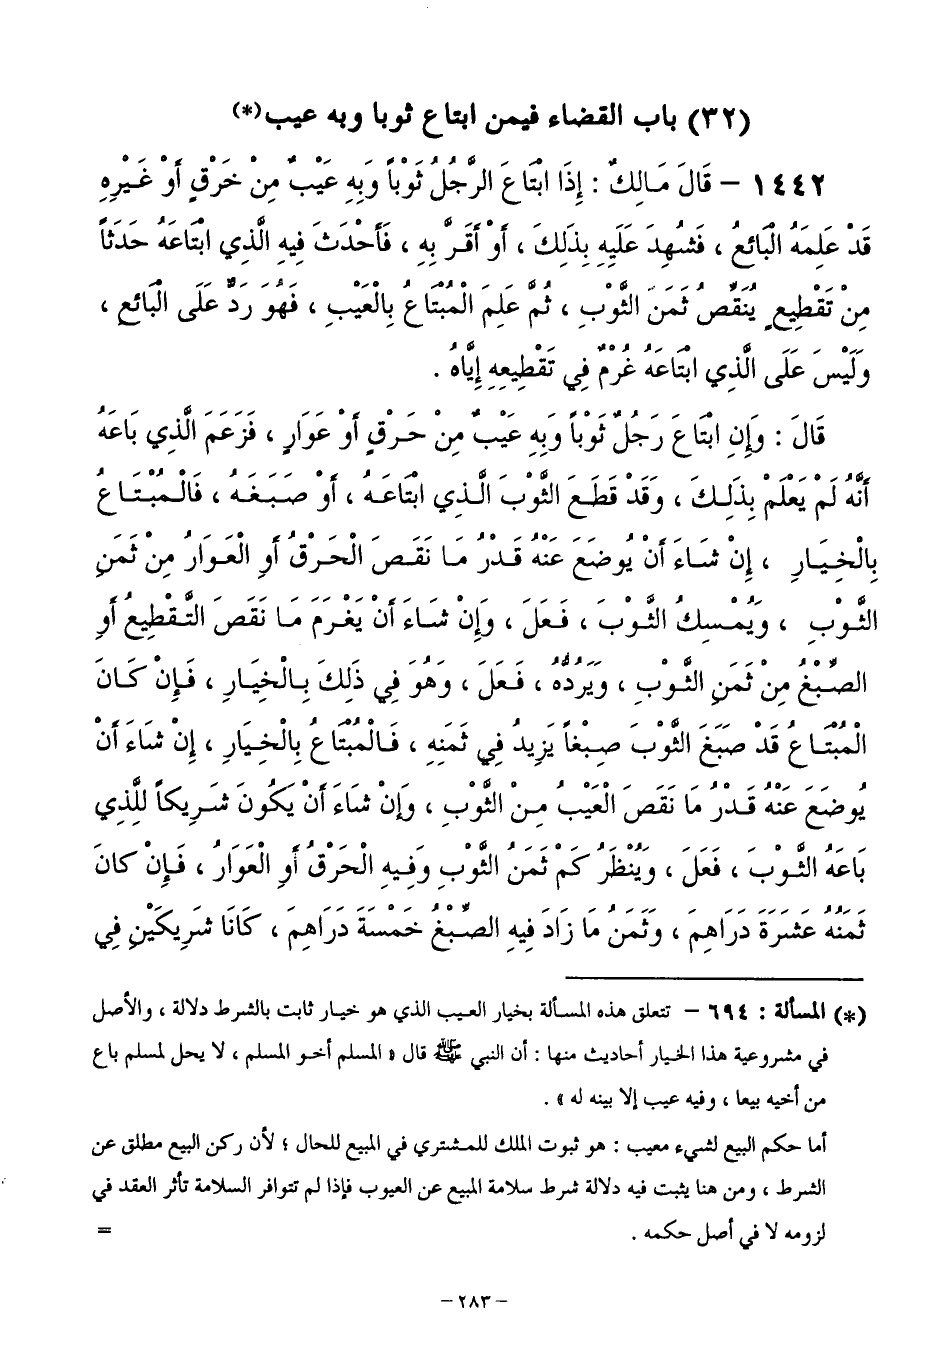 (٣٢) باب القضاء فيمن ابتاع ثوبا وبه عيب(*)
١٤٤٢ – قَالَ مَالِكٌ : إِذَا ابْتَاعَ الرَّجُلُ ثَوْباً وَبِهِ عَيْبٌ مِنْ خَرْقٍ أَوْ غَيْرِهِ
قَدْ عَلِمَهُ الْبَائِعُ ، فَشُهِدَ عَلَيْهِ بِذَلِكَ ، أَوْ أَقَرَّ بِهِ ، فَأَحْدَثَ فِيهِ الَّذِي ابْتَاعَهُ حَدَثاً
مِنْ تَقْطِيعٍ يُنَقِّصُ ثَمَنَ الثَّوْبِ ، ثُمَّ عَلِمَ الْمُبْتَاعُ بِالْعَيْبِ ، فَهُوَ رَدٌّ عَلَى الْبَائِعِ ،
وَلَيْسَ عَلَى الَّذِي ابْتَاعَهُ غُرْمٌ فِي تَقْطِيعِهِ إِيَّاهُ .
قَالَ : وَإِنِ ابْتَاعَ رَجُلٌ ثَوْباً وَبِهِ عَيْبٌ مِنْ حَرْقٍ أَوْ عَوَارٍ ، فَزَعَمَ الَّذِي بَاعَهُ
أَنَّهُ لَمْ يَعْلَمْ بِذَلِكَ ، وَقَدْ قَطَعَ الثَّوْبَ الَّذِي ابْتَاعَهُ ، أَوْ صَبَغَهُ ، فَالْمُبْتَاعُ
بِالْخِيَارِ ، إِنْ شَاءَ أَنْ يُوضَعَ عَنْهُ قَدْرُ مَا نَقَصَ الْحَرْقُ أَوِ الْعَوَارُ مِنْ ثَمَنِ
الثَّوْبِ ، وَيُمْسِكُ الثَّوْبَ ، فَعَلَ ، وَإِنْ شَاءَ أَنْ يَغْرَمَ مَا نَقَصَ التَّقْطِيعُ أَوِ
الصِّبْغُ مِنْ ثَمَنِ الثَّوْبِ ، وَيَرُدُّهُ ، فَعَلَ ، وَهُوَ فِي ذَلِكَ بِالْخِيَارِ ، فَإِنْ كَانَ
الْمُبْتَاعُ قَدْ صَبَغَ الثَّوْبَ صِبْغاً يَزِيدُ فِي ثَمَنِهِ ، فَالْمُبْتَاعُ بِالْخِيَارِ ، إِنْ شَاءَ أَنْ
يُوضَعَ عَنْهُ قَدْرُ مَا نَقَصَ الْعَيْبُ مِنْ الثَّوْبِ ، وَإِنْ شَاءَ أَنْ يَكُونَ شَرِيكاً لِلَّذِي
بَاعَهُ الثَّوْبَ ، فَعَلَ ، وَيُنْظَرُ كَمْ ثَمَنُ الثَّوْبِ وَفِيهِ الْحَرْقُ أَوِ الْعَوَارُ ، فَإِنْ كَانَ
ثَمَنُهُ عَشَرَةَ دَرَاهِمَ ، وَثَمَنُ مَا زَادَ فِيهِ الصِّبْغُ خَمْسَةَ دَرَاهِمَ ، كَانَا شَرِيكَيْنِ فِي
(*) المسألة : ٦٩٤ – تتعلق هذه المسألة بخيار العيب الذي هو خيار ثابت بالشرط دلالة ، والأصل
في مشروعية هذا الخيار أحاديث منها : أن النبي ﷺ قال « المسلم أخو المسلم ، لا يحل لمسلم باع
من أخيه بيعا ، وفيه عيب إلا بينه له » .
أما حكم البيع لشيء معيب : هو ثبوت الملك للمشتري في المبيع للحال ؛ لأن ركن البيع مطلق عن
الشرط ، ومن هنا يثبت فيه دلالة شرط سلامة المبيع عن العيوب فإذا لم تتوافر السلامة تأثر العقد في
لزومه لا في أصل حكمه . =
– ٢٨٣ –